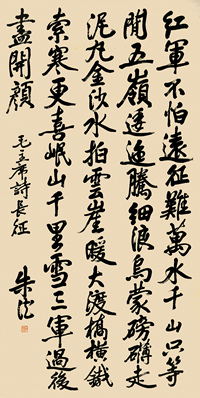 紅軍不怕遠征難萬水千山只等
閒五嶺逶迤騰細浪烏蒙磅礴走
泥丸金沙水拍雲崖暖大渡橋橫鐵
索寒更喜岷山千里雪三軍過後
盡開顏
毛主席詩長征
朱德